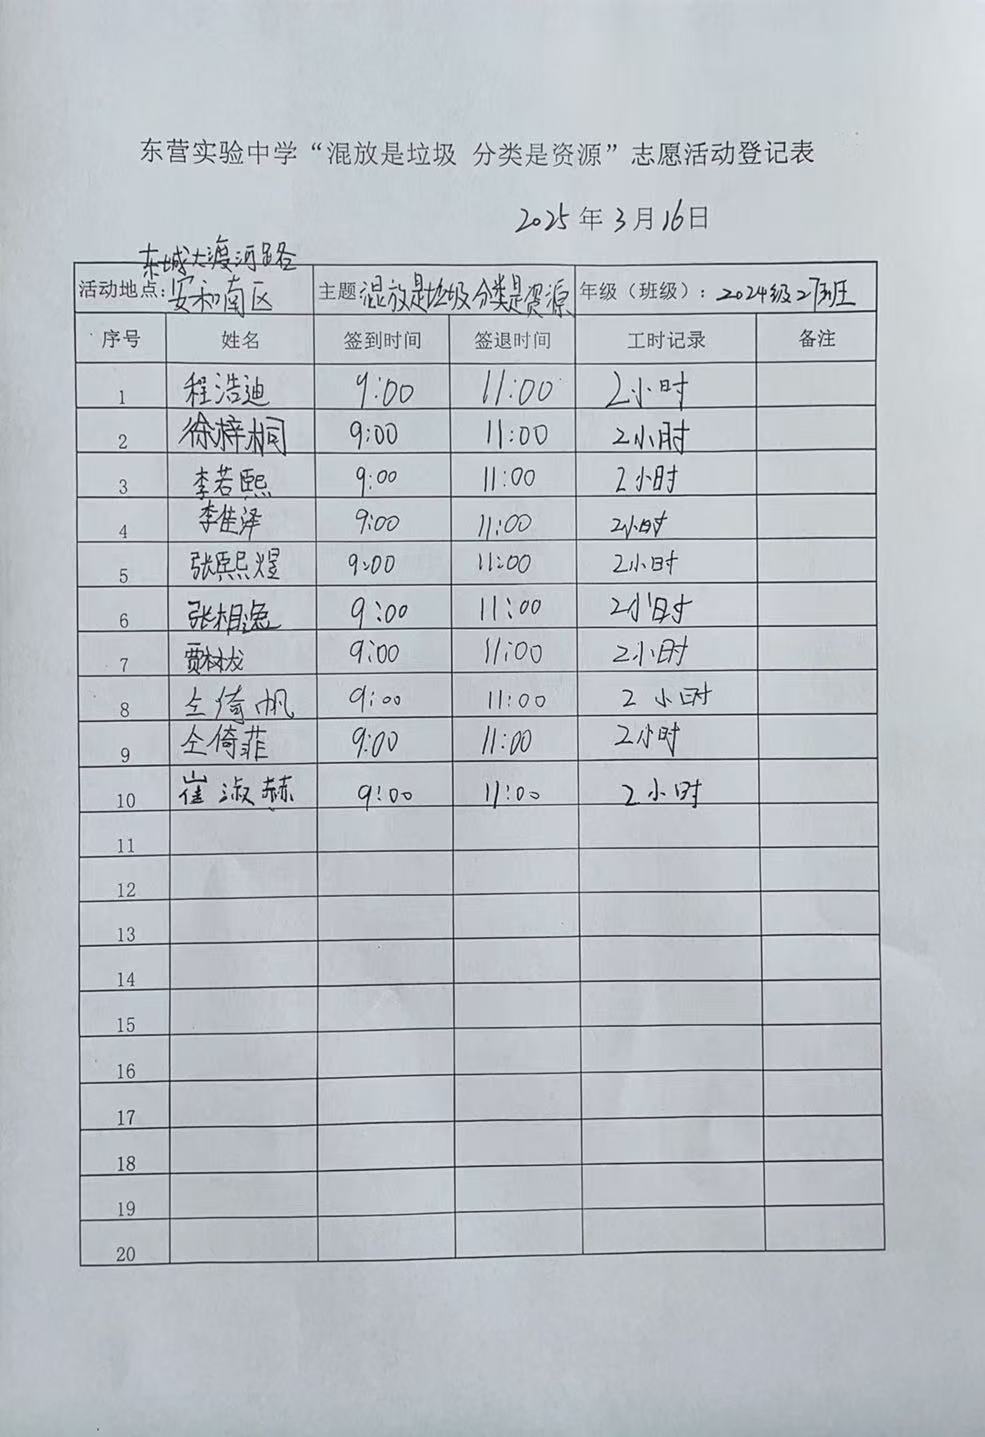 东营实验中学“混放是垃圾 分类是资源”志愿活动登记表
2025年3月16日
东城大渡河路
活动地点：安和南区 主题 混放是垃圾分类是资源 年级（班级）：2024级27班
序号 姓名 签到时间 签退时间 工时记录 备注
1 程浩迪 9:00 11:00 2小时
2 徐梓桐 9:00 11:00 2小时
3 李若熙 9:00 11:00 2小时
4 李佳泽 9:00 11:00 2小时
5 张熙煜 9:00 11:00 2小时
6 张相逸 9:00 11:00 2小时
7 贾 9:00 11:00 2小时
8 仝倚帆 9:00 11:00 2小时
9 仝倚菲 9:00 11:00 2小时
10 崔淑赫 9:00 11:00 2小时
11
12
13
14
15
16
17
18
19
20